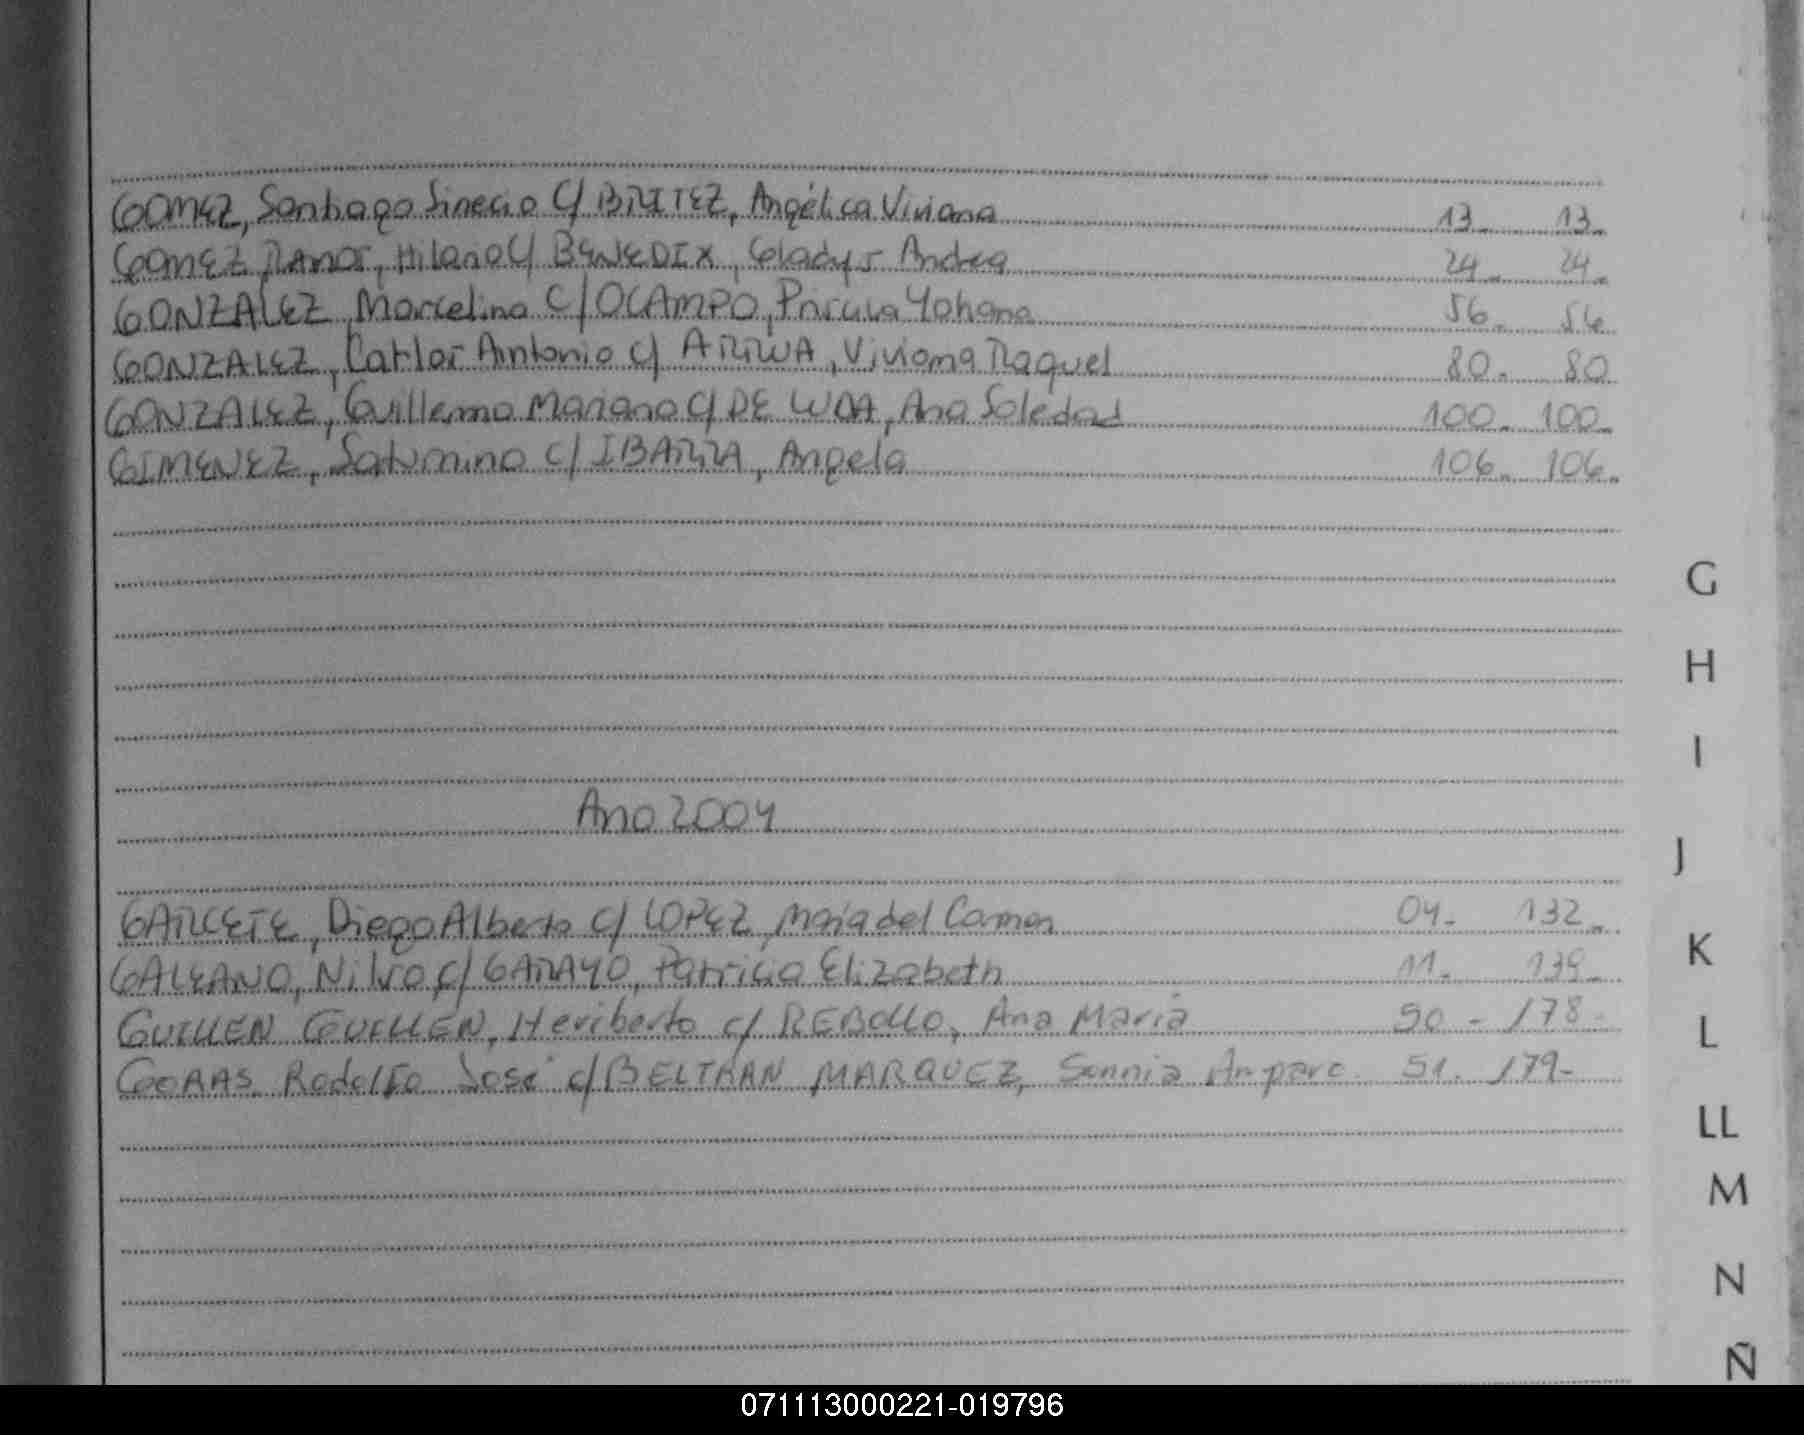 GOMEZ, Santiago Sinecio C/ BRITEZ, Angélica Viviana 13. 13.
GOMEZ RAMOS, Hilario C/ BENEDIX, Gladys Andrea 24. 24.
GONZALEZ, Marcelino C/ OCAMPO, Yohana 56. 56
GONZALEZ, Carlos Antonio c/ Viviana Raquel 80. 80
GONZALEZ, Guillermo Mariano C/ DE Ana Soledad 100. 100.
GIMENEZ, Saturnino c/ IBARRA, Angela 106. 106.
G
H
I
Año 2004
J
GARCETE, Diego Alberto c/ LOPEZ, Maria del Carmen 04. 132.
K
GALEANO, Nilvo c/ GARAYO, Patricia Elizabeth 11. 139.
GUILLEN GUILLEN, Heriberto c/ REBOLLO, Ana Maria 50 - 178.
L
Rodolfo José c/ BELTRAN MARQUEZ, Sonnia Amparo. 51. 179-
LL
M
N
Ñ
071113000221-019796